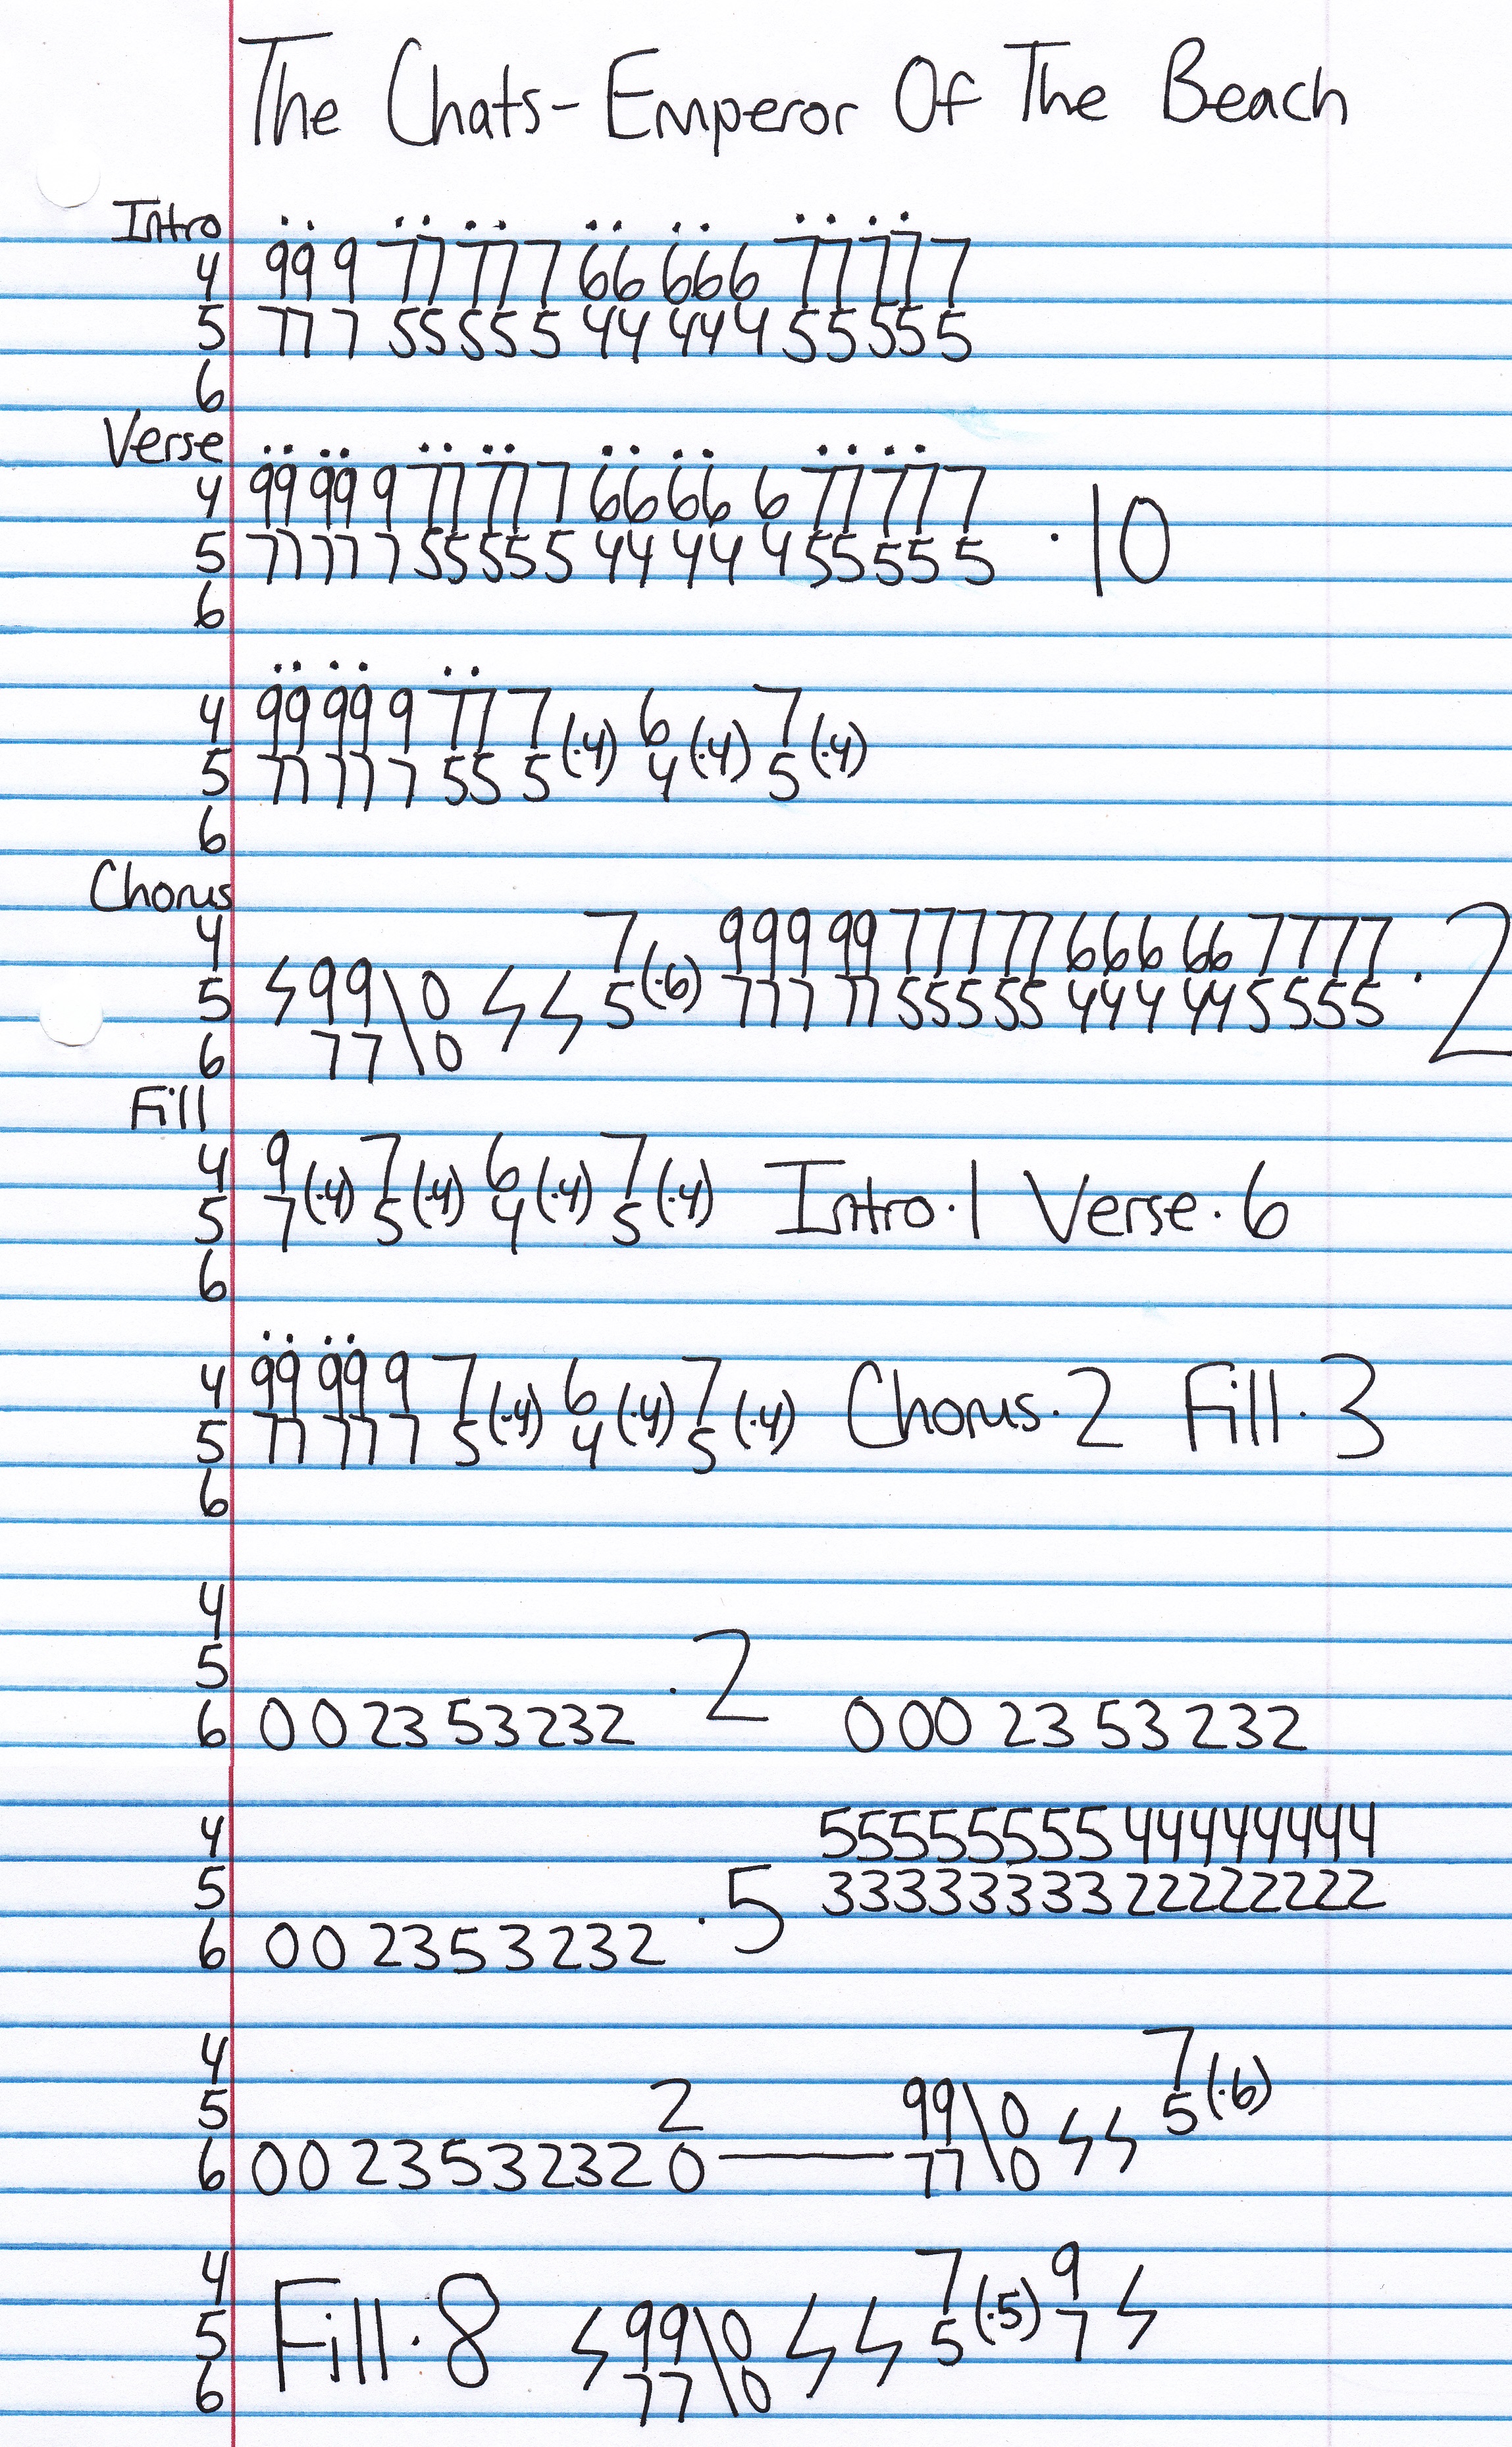 The Chats- Emperor Of The Beach
Intro
4 99 9 77 77 7 66 66 6 77 77 7
5 77 7 55 55 5 44 44 4 55 55 5
6
Verse
4 99 99 9 77 77 7 66 66 6 77 77 7
5 77 77 7 55 55 5 44 44 4 55 55 5 ·10
6
4 99 99 9 77 7 6 7
5 77 77 7 55 5 (·4) 4 (·4) 5 (·4)
6
Chorus
4 7 999 99 777 77 666 66 7777
5 ϟ 99\0 ϟ ϟ 5 (·6) 777 77 555 55 444 44 5555 ·2
6 77\0
Fill
4 9 7 6 7
5 7 (·4) 5 (·4) 4 (·4) 5 (·4) Intro·1 Verse·6
6
4 99 99 9 7 6 7
5 77 77 7 5 (·4) 4 (·4) 5 (·4) Chorus·2 Fill·3
6
4
5 ·2
6 0 0 23 53232 0 00 23 53 232
4 55555555 44444444
5 ·5 33333333 22222222
6 0 0 2353232
4 7
5 2 99\0 ϟ ϟ 5 (·6)
6 00 2353232 0 — 77\0
4 7 9
5 Fill·8 ϟ 99\0 ϟ ϟ 5 (·5) 7 ϟ
6 77\0